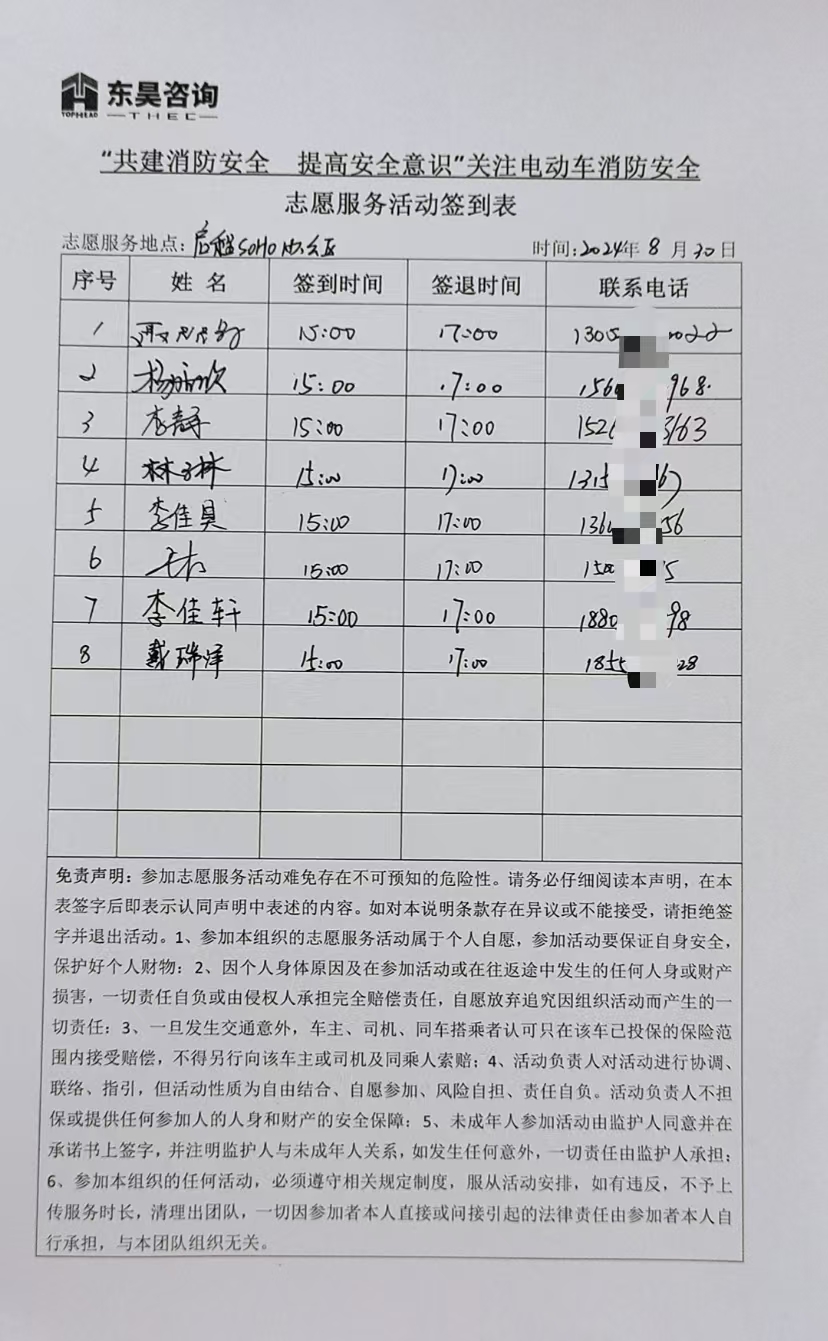 东昊咨询
TOPHEAD
THEC
“共建消防安全 提高安全意识”关注电动车消防安全
志愿服务活动签到表
志愿服务地点: SOHO 时间:2024年 8 月 30 日
序号 姓 名 签到时间 签退时间 联系电话
1 15:00 17:00 1305 022
2 15:00 17:00 156 968
3 李静 15:00 17:00 152 3163
4 林 林 15:00 17:00 1315
5 李佳昊 15:00 17:00 136 56
6 15:00 17:00 150 5
7 李佳轩 15:00 17:00 1880 98
8 戴瑞泽 15:00 17:00 1855 28
免责声明:参加志愿服务活动难免存在不可预知的危险性。请务必仔细阅读本声明,在本
表签字后即表示认同声明中表述的内容。如对本说明条款存在异议或不能接受,请拒绝签
字并退出活动。1、参加本组织的志愿服务活动属于个人自愿,参加活动要保证自身安全,
保护好个人财物:2、因个人身体原因及在参加活动或在往返途中发生的任何人身或财产
损害,一切责任自负或由侵权人承担完全赔偿责任,自愿放弃追究因组织活动而产生的一
切责任:3、一旦发生交通意外,车主、司机、同车搭乘者认可只在该车已投保的保险范
围内接受赔偿,不得另行向该车主或司机及同乘人索赔;4、活动负责人对活动进行协调、
联络、指引,但活动性质为自由结合、自愿参加、风险自担、责任自负。活动负责人不担
保或提供任何参加人的人身和财产的安全保障:5、未成年人参加活动由监护人同意并在
承诺书上签字,并注明监护人与未成年人关系,如发生任何意外,一切责任由监护人承担;
6、参加本组织的任何活动,必须遵守相关规定制度,服从活动安排,如有违反,不予上
传服务时长,清理出团队,一切因参加者本人直接或问接引起的法律责任由参加者本人自
行承担,与本团队组织无关。